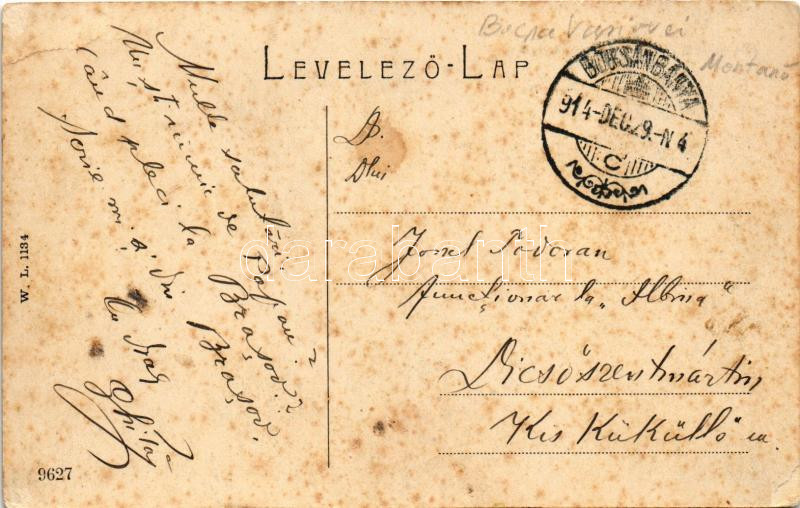 Bocșa Vasiovei
Montană
LEVELEZŐ-LAP
BOKSÁNBÁNYA
914-DEC.29.-N4
C
Multe salutări.
Nu știi nimic de Papani?
Când pleci la Brașov?
Scrie-mi și din Brașov.
Cu drag
Ghiță
D.
Dlui
Iosef Todoran
funcționar la „Albina"
Dicsőszentmárton
Kis Küküllő m.
W. L. 1134
9627
darabanth